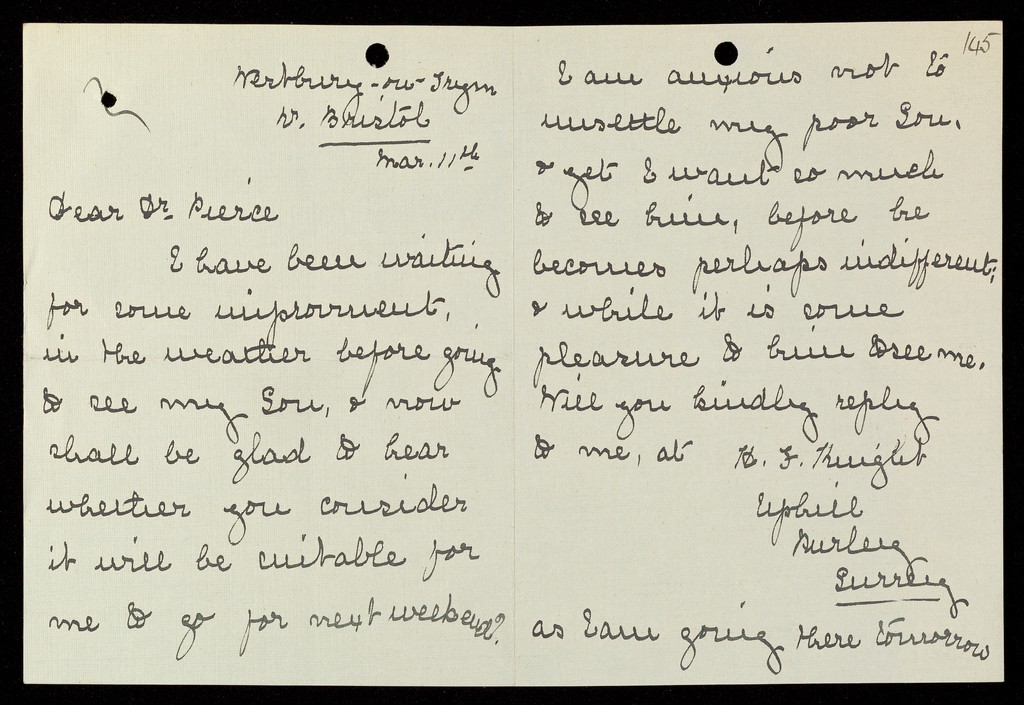 Westbury-on-Trym
Nr. Bristol
Mar. 11th
Dear Dr. Pierce
I have been waiting
for some improvement,
in the weather before going
to see my Son, & now
shall be glad to hear
whether you consider
it will be suitable for
me to go for next weekend?
145
I am anxious not to
unsettle my poor Son,
& yet I want so much
to see him, before he
becomes perhaps indifferent;
& while it is some
pleasure to him to see me.
Will you kindly reply
to me, at H. F. Knight
Uphill
Purley
Surrey
as I am going there tomorrow